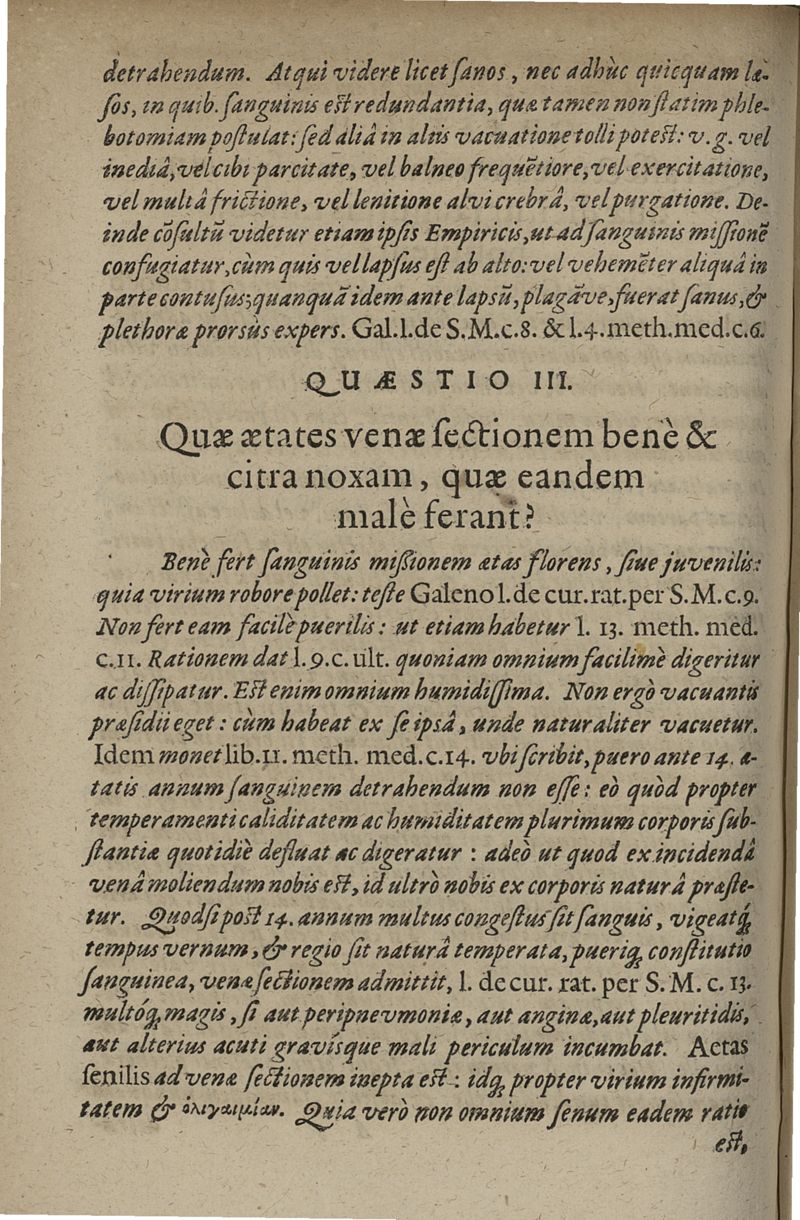 detrahendum. Atqui videre licet ſanos, nec adhùc quicquam læ-
ſos, in quib. ſanguinis eſt redundantia, quæ tamen non ſtatim phle-
botomiam poſtulat: ſed aliâ in aliis vacuatione tolli poteſt: v. g. vel
inediâ, vel cibi parcitate, vel balneo frequẽtiore, vel exercitatione,
vel multâ frictione, vel lenitione alvi crebrâ, vel purgatione. De-
inde cõſultũ videtur etiam ipſis Empiricis, ut ad ſanguinis miſſionẽ
confugiatur, cùm quis vel lapſus eſt ab alto: vel vehemẽter aliquâ in
parte contuſus; quanquã idem ante lapsũ, plagãve, fuerat ſanus, &
plethoræ prorsùs expers. Gal. l. de S. M. c. 8. & l. 4. meth. med. c. 6.
QUÆSTIO III.
Quæ ætates venæ ſectionem benè &
citra noxam, quæ eandem
malè ferant?
Benè fert ſanguinis miſsionem ætas florens, ſiue juvenilis:
quia virium robore pollet: teſte Galeno l. de cur. rat. per S. M. c. 9.
Non fert eam facilè puerilis: ut etiam habetur l. 13. meth. med.
c. 11. Rationem dat l. 9. c. ult. quoniam omnium facilimè digeritur
ac diſſipatur. Eſt enim omnium humidiſſima. Non ergò vacuantis
præſidii eget: cùm habeat ex ſe ipsâ, unde naturaliter vacuetur.
Idem monet lib. 11. meth. med. c. 14. vbi ſcribit, puero ante 14. æ-
tatis annum ſanguinem detrahendum non eſſe: eò quòd propter
temperamenti caliditatem ac humiditatem plurimum corporis ſub-
ſtantiæ quotidiè defluat ac digeratur: adeò ut quod ex incidendâ
venâ moliendum nobis eſt, id ultrò nobis ex corporis naturâ præſte-
tur. Quodſi poſt 14. annum multus congeſtus ſit ſanguis, vigeatq́;
tempus vernum, & regio ſit naturâ temperata, pueriq; conſtitutio
ſanguinea, venæ ſectionem admittit, l. de cur. rat. per S. M. c. 13.
multóq; magis, ſi aut peripnevmoniæ, aut anginæ, aut pleuritidis,
aut alterius acuti gravísque mali periculum incumbat. Aetas
ſenilis ad venæ ſectionem inepta eſt: idq; propter virium infirmi-
tatem & ὀλιγαιμίαν. Quia verò non omnium ſenum eadem ratio
eſt,